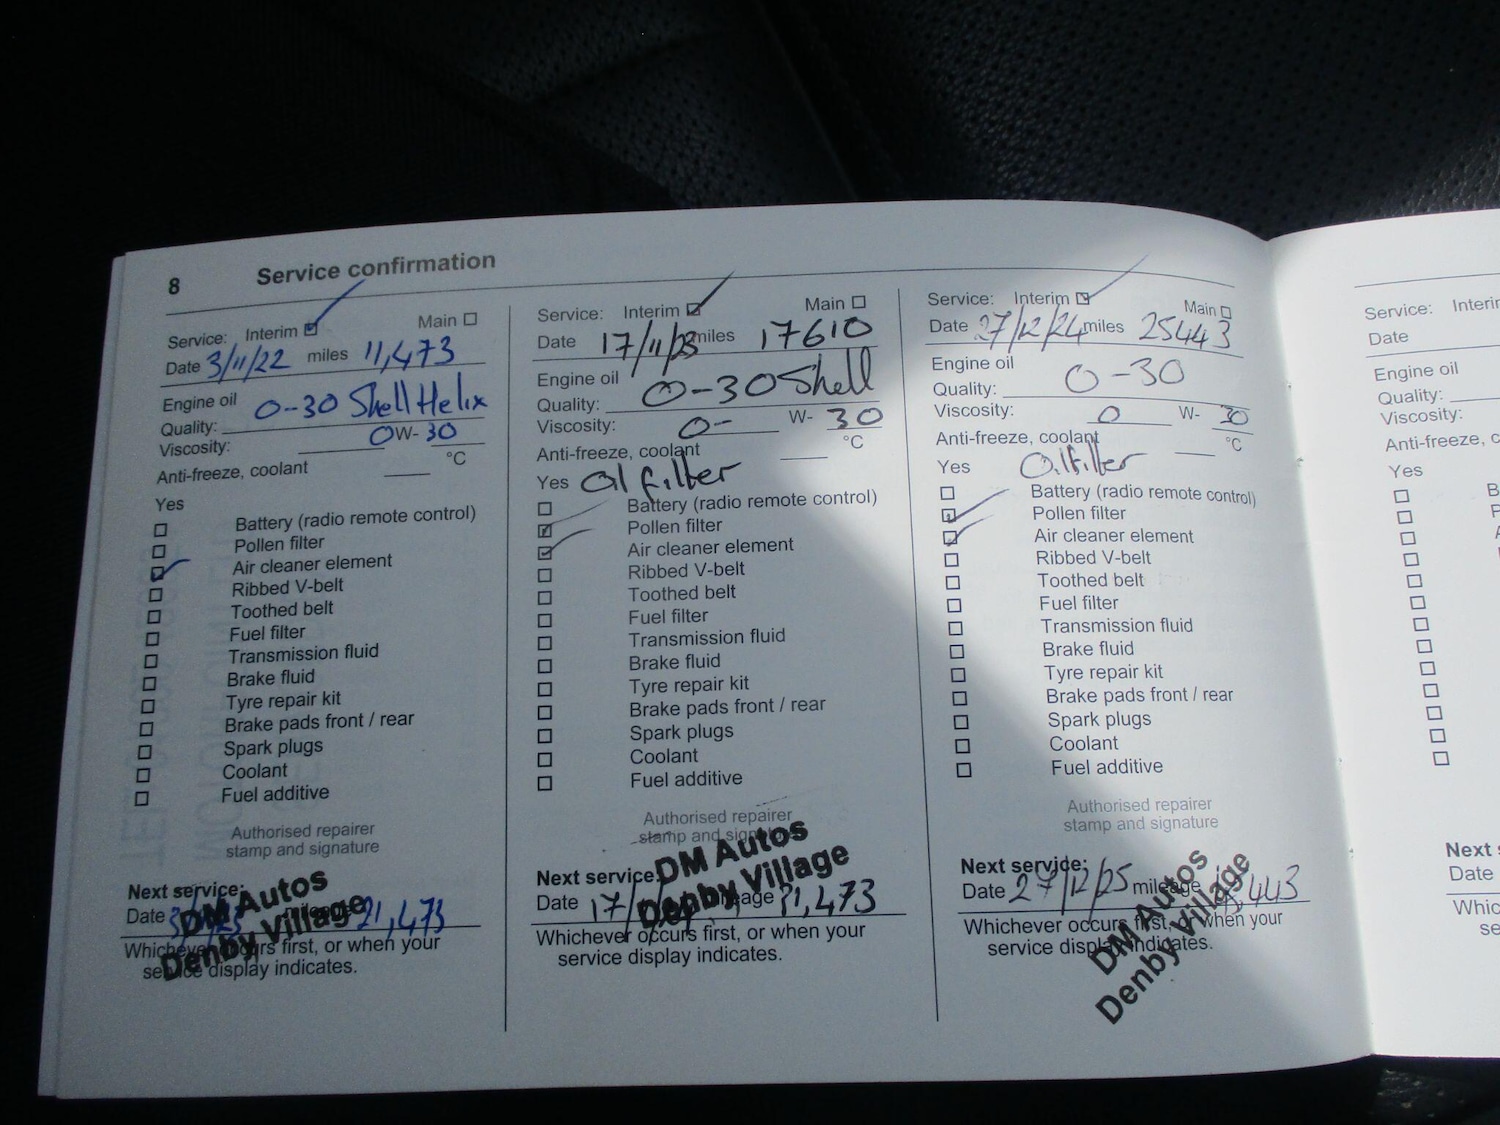 8 Service confirmation
Service: Interim Main
Date 3/11/22 miles 11,473
Engine oil
Quality: 0-30 Shell Helix
Viscosity: 0W-30
Anti-freeze, coolant °C
Yes
Battery (radio remote control)
Pollen filter
Air cleaner element
Ribbed V-belt
Toothed belt
Fuel filter
Transmission fluid
Brake fluid
Tyre repair kit
Brake pads front / rear
Spark plugs
Coolant
Fuel additive
Authorised repairer
stamp and signature
Next service:
Date mileage 21,473
Whichever occurs first, or when your
service display indicates.
DM Autos
Denby Village
Service: Interim Main
Date 17/11/23 miles 17610
Engine oil
Quality: 0-30 Shell
Viscosity: 0- W- 30
Anti-freeze, coolant °C
Yes Oil filter
Battery (radio remote control)
Pollen filter
Air cleaner element
Ribbed V-belt
Toothed belt
Fuel filter
Transmission fluid
Brake fluid
Tyre repair kit
Brake pads front / rear
Spark plugs
Coolant
Fuel additive
Authorised repairer
stamp and signature
Next service:
Date mileage
Whichever occurs first, or when your
service display indicates.
DM Autos
Denby Village
Service: Interim Main
Date 27/12/24 miles 25443
Engine oil
Quality: 0-30
Viscosity: 0 W- 30
Anti-freeze, coolant °C
Yes Oil filter
Battery (radio remote control)
Pollen filter
Air cleaner element
Ribbed V-belt
Toothed belt
Fuel filter
Transmission fluid
Brake fluid
Tyre repair kit
Brake pads front / rear
Spark plugs
Coolant
Fuel additive
Authorised repairer
stamp and signature
Next service:
Date 27/12/25 mileage
Whichever occurs first, or when your
service display indicates.
DM Autos
Denby Village
Service:
Date
Engine oil
Quality:
Viscosity:
Anti-freeze,
Yes
Date